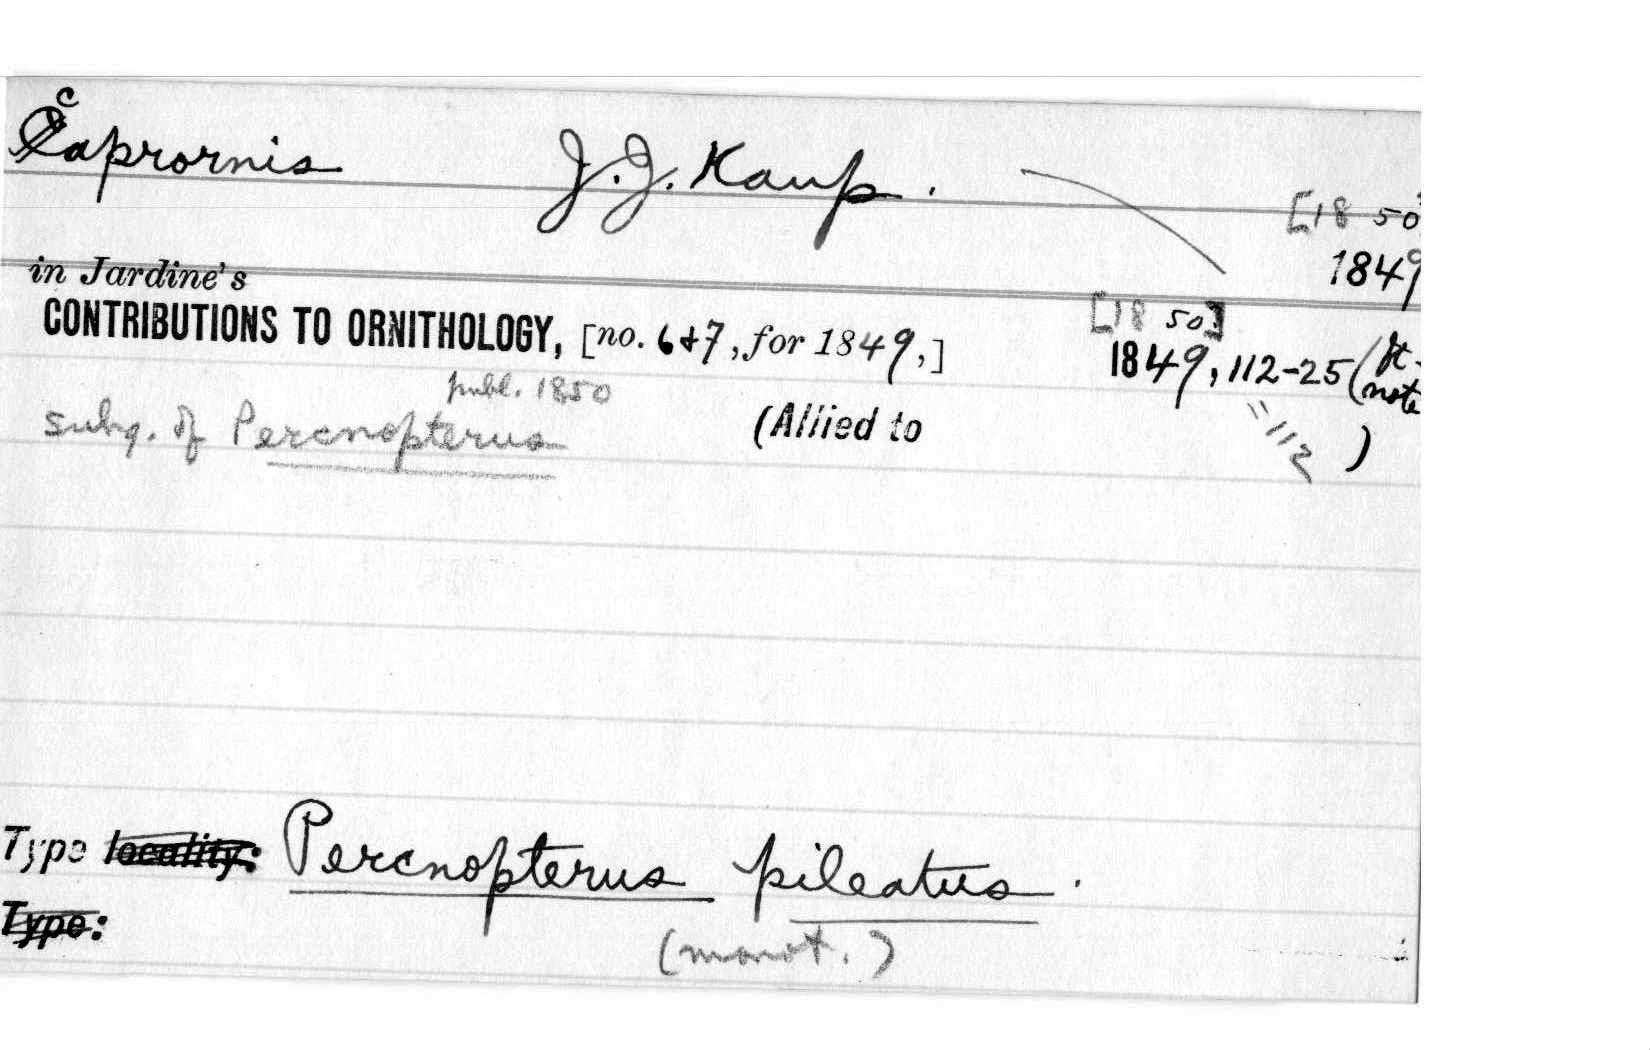 Caprornis J. J. Kaup. [1850
1849
in Jardine's
CONTRIBUTIONS TO ORNITHOLOGY, [no. 6+7, for 1849,] [1850] 1849, 112-25 (ft-note
publ. 1850
subg. of Percnopterus (Allied to " 112 )
Type locality: Percnopterus pileatus.
Type: (monot.)